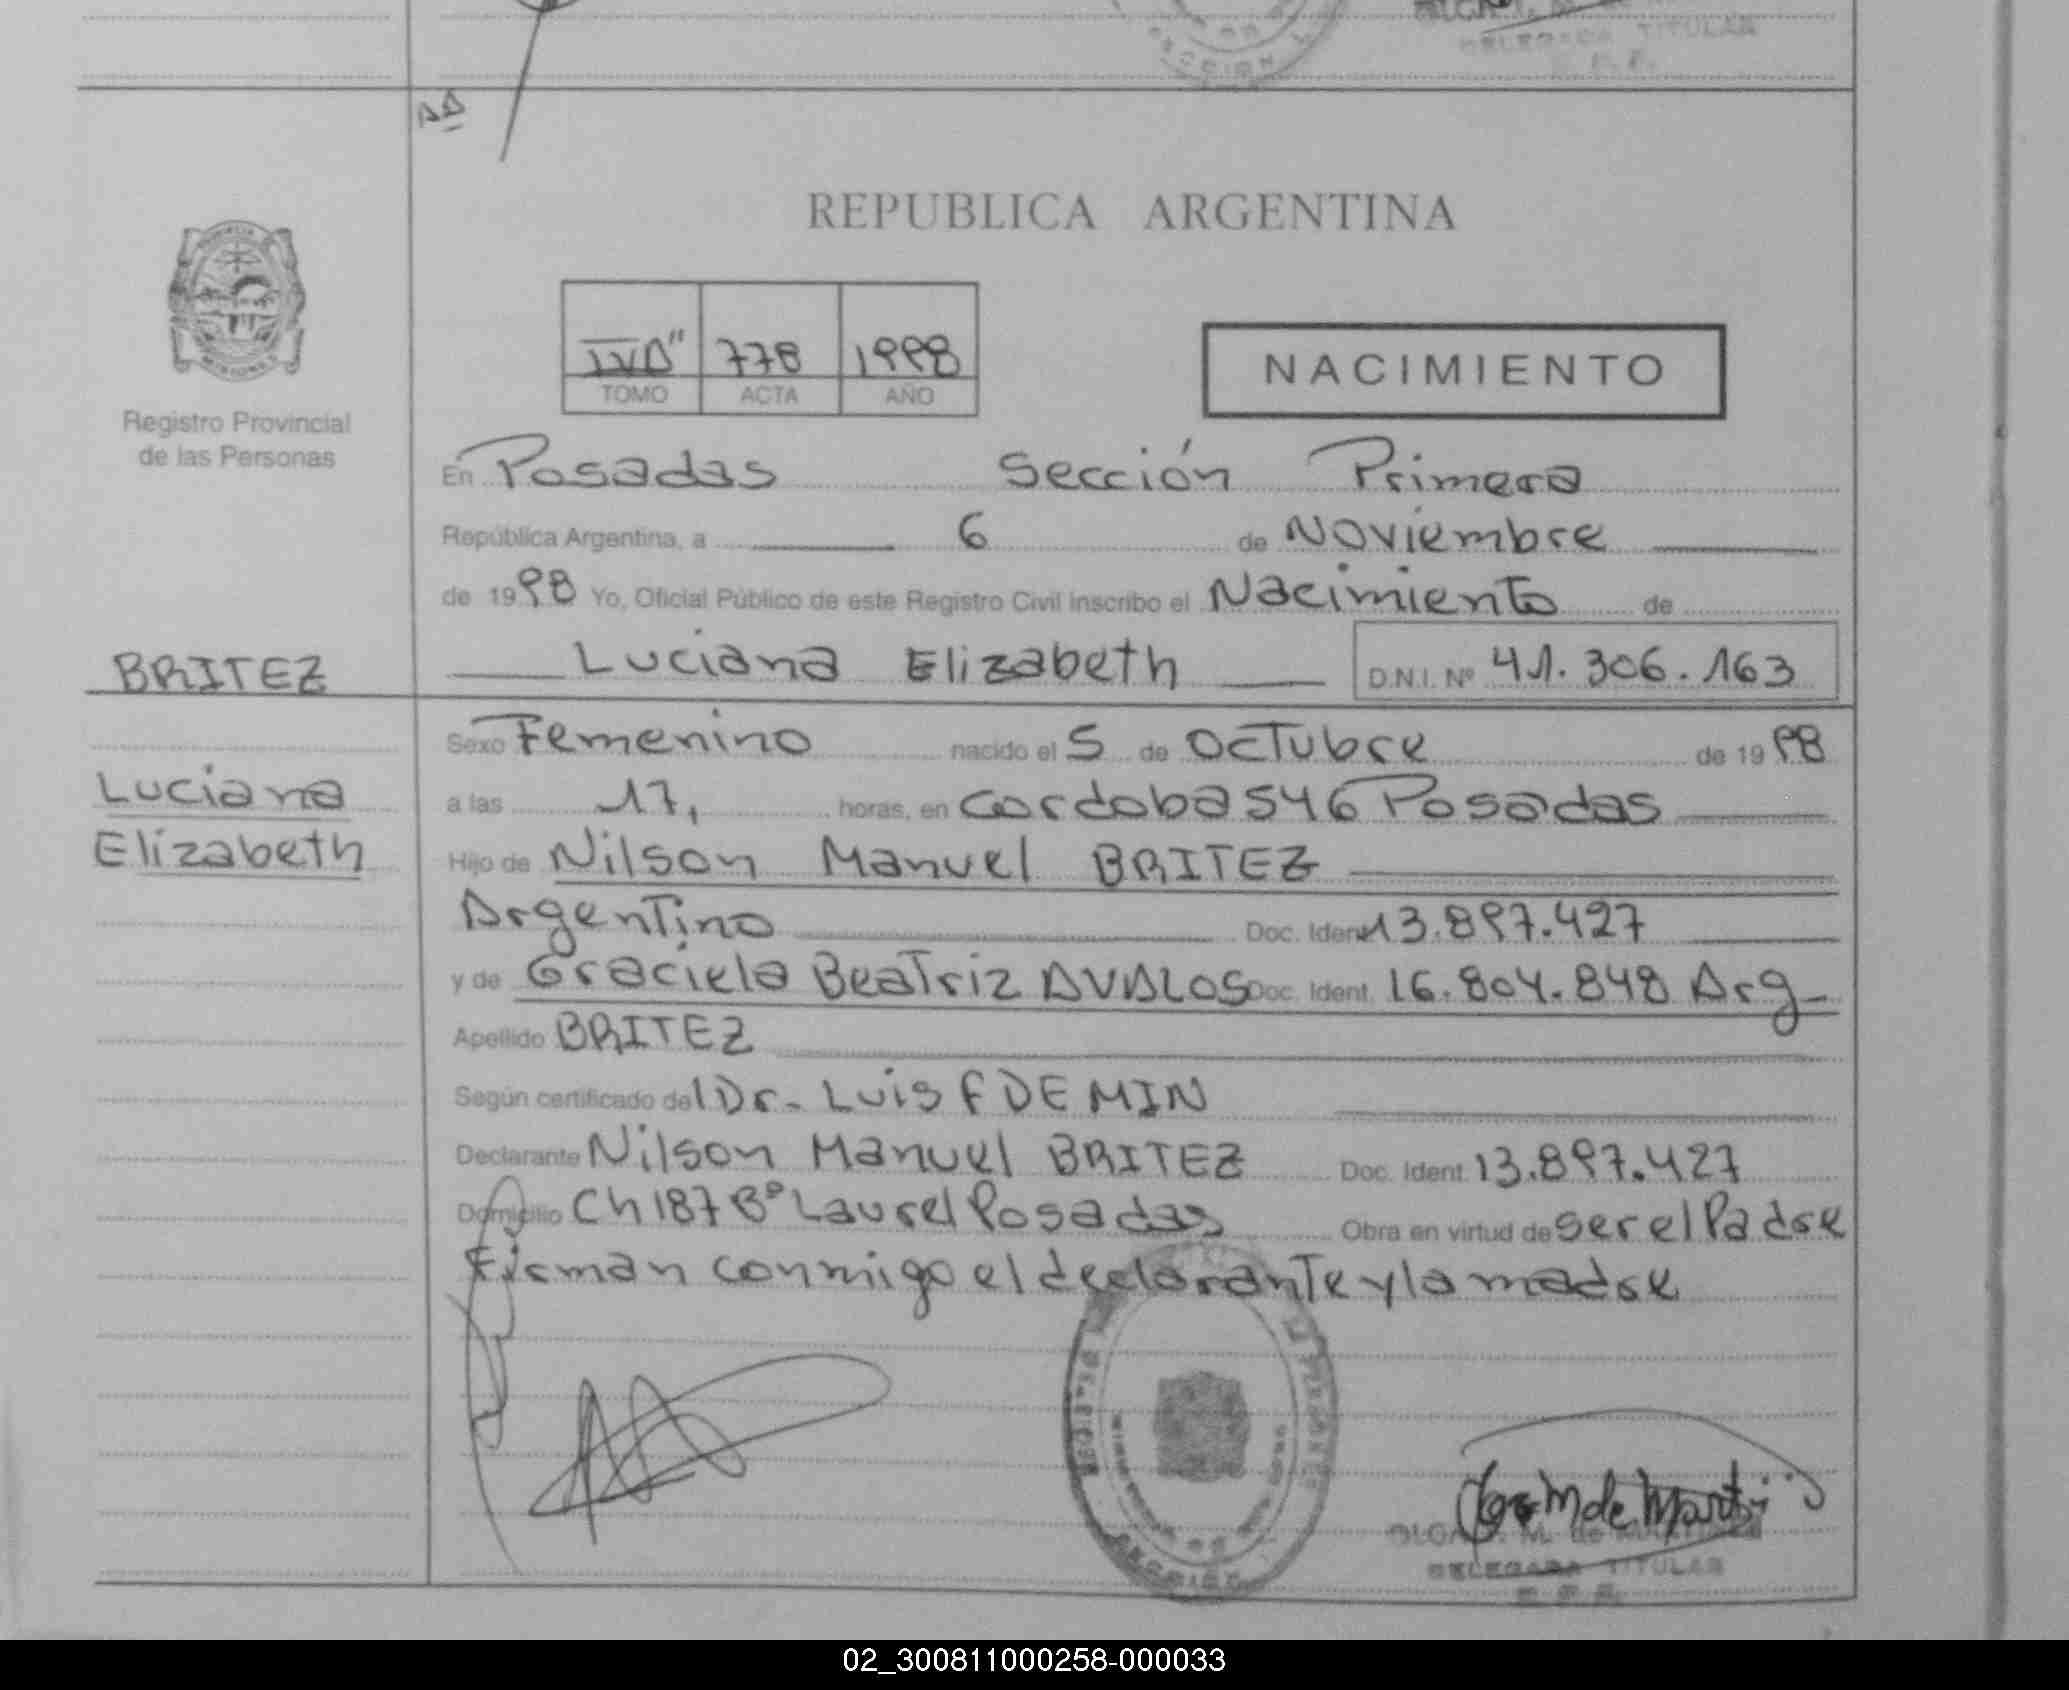 DELEGADA TITULAR
REPUBLICA ARGENTINA
778 1998
TOMO ACTA AÑO
NACIMIENTO
Registro Provincial
de las Personas
En Posadas Sección Primera
República Argentina, a 6 de Noviembre
de 1998 Yo, Oficial Público de este Registro Civil inscribo el Nacimiento de
BRITEZ
Luciana Elizabeth D.N.I. Nº 41.306.163
Sexo Femenino nacido el 5 de Octubre de 1998
Luciana
Elizabeth
a las 17, horas, en Cordoba 546 Posadas
Hijo de Nilson Manuel BRITEZ
Argentino Doc. Ident 13.897.427
y de Graciela Beatriz AVALOS Doc. Ident. 16.804.848 Arg
Apellido BRITEZ
Según certificado del Dr. Luis F DEMIN
Declarante Nilson Manuel BRITEZ Doc. Ident. 13.897.427
Domicilio Ch 187 Bº Laurel Posadas Obra en virtud de ser el Padre
Firman conmigo el declarante y la madre
DELEGADA TITULAR
02_300811000258-000033